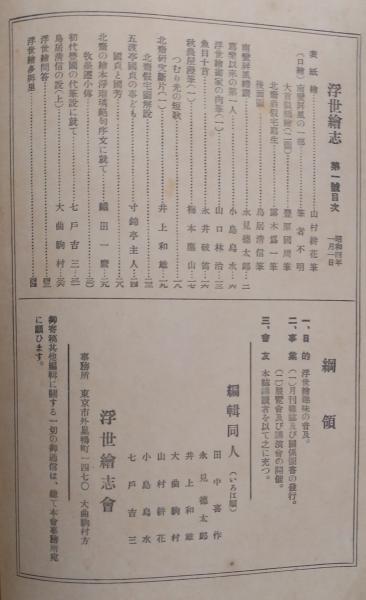 浮世繪志 第一號目次
昭和四年
一月一日
表紙繪 山村耕花筆
(口繪) 南蠻屏風の一部 筆者不明
大首似顔繪(二圖) 豐原國周筆
北齋翁假宅寫生 露木爲一筆
後面圖 鳥居清信筆
南蠻屏風雜觀 永見德太郎 二
寫樂以來の第一人 小島烏水 六
浮世繪畫家の肉筆(一) 山口林治 三
魚目十首 永井破笛 一六
秋農屋漫筆(一) 梅本塵山 一七
つむり光の短歌 一八
北齋研究斷片(一) 井上和雄 一九
北齋假宅圖解説
五渡亭國貞の事ども 寸錦亭主人
國貞と國芳 一六
北齋の繪本淨瑠璃絶句序文に就て 織田一磨
牧墨僊小傳
初代豐國の代筆説に就て 七戸吉三
鳥居清信の説(上) 大曲駒村
浮世繪問答
浮世繪多與里
綱領
一、目的 浮世繪趣味の普及。
二、事業 (一)月刊雜誌及び關係圖書の發行。
(二)展覽會及び講演會の開催。
三、會友 本誌購讀者を以て之に充つ。
編輯同人 (いろは順)
田中喜作
永見德太郎
井上和雄
大曲駒村
山村耕花
小島烏水
七戸吉三
浮世繪志會
事務所 東京市外巣鴨町一四七〇 大曲駒村方
御寄稿其他編輯に關する一切の御通信は、總て本會事務所宛
に願ひます。